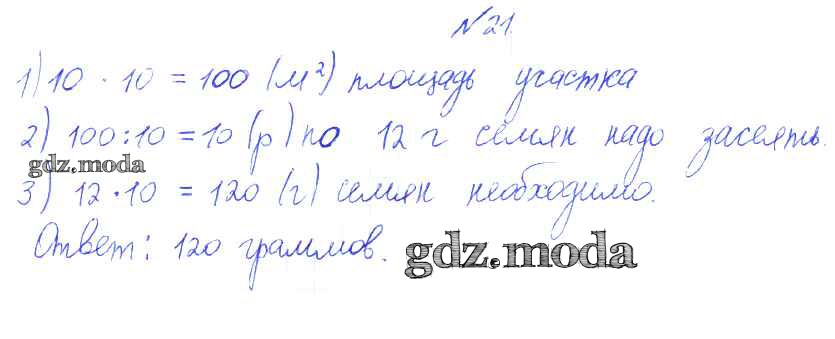 №21.
1) 10 · 10 = 100 (м²) площадь участка
2) 100:10 = 10 (р) по 12 г семян надо засеять.
gdz.moda
3) 12 · 10 = 120 (г) семян необходимо.
Ответ: 120 граммов.
gdz.moda